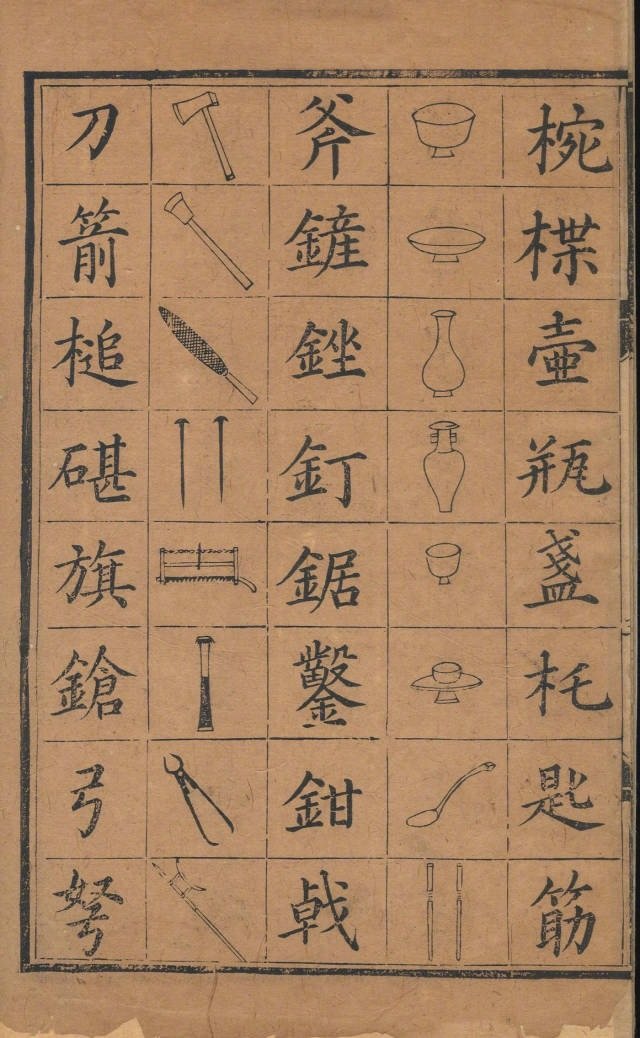 椀楪壷瓶盞杔匙筯
斧鏟銼釘鋸鑿鉗戟
刀箭槌碪旗鎗弓弩